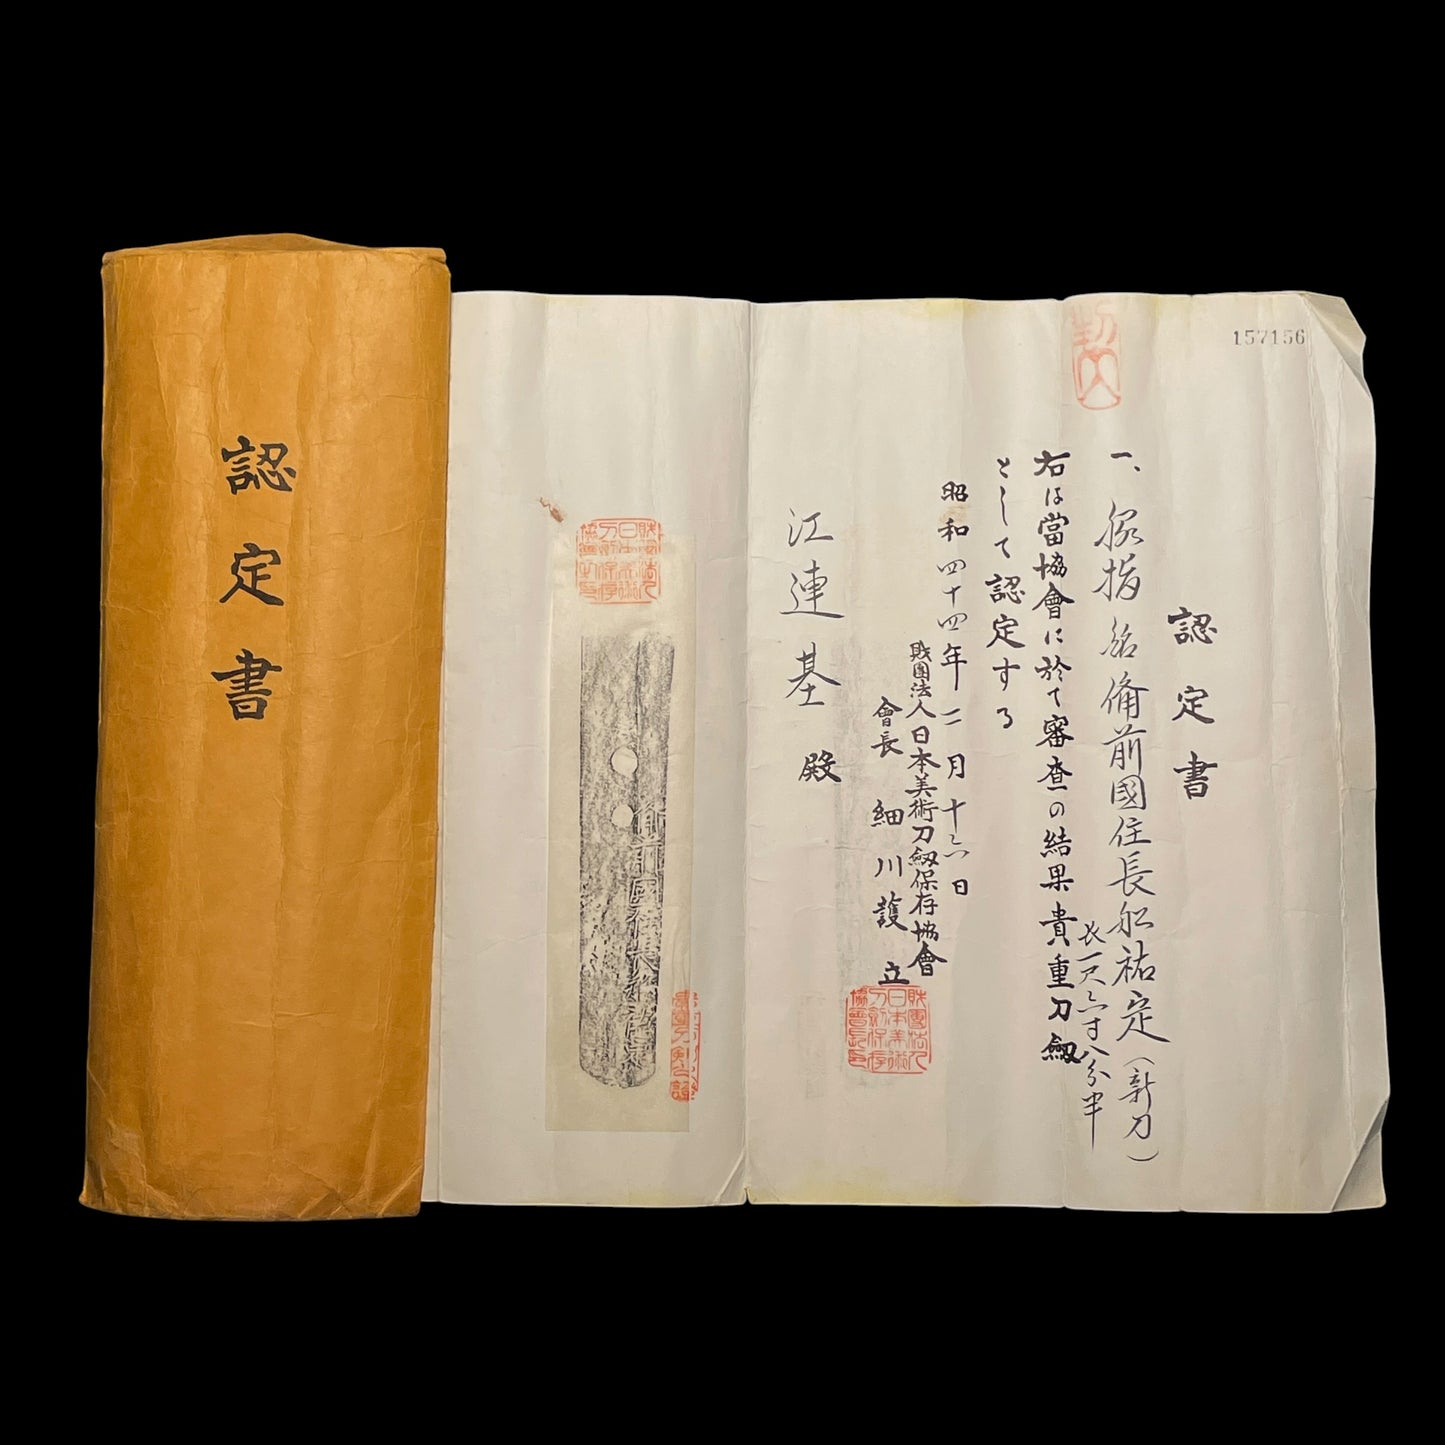 157156
認定書
一、脇指 銘 備前國住長舩祐定(新刀)
長一尺六寸八分半
右は當協會に於て審査の結果貴重刀劔
として認定する
昭和四十四年二月十六日
財團法人日本美術刀劔保存協會
會長 細川護立
江連基殿
備前國住長舩祐定
認定書